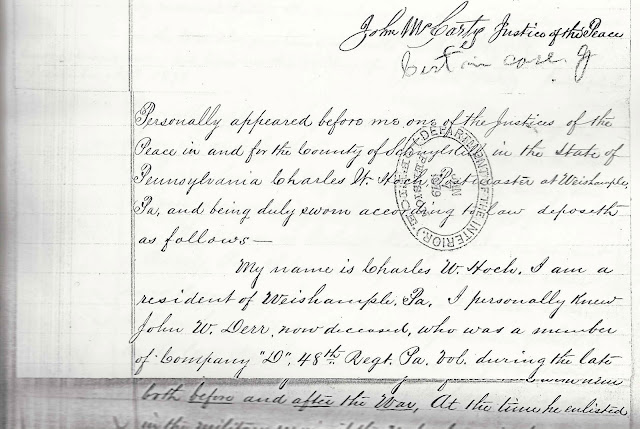 John McCarty Justice of the Peace
Cert in case. J
Personally appeared before me one of the Justices of the
Peace in and for the County of Schuylkill in the State of
Pennsylvania Charles W. Hoch Postmaster at Weishample,
Pa, and being duly sworn according to law deposeth
as follows—
DEPARTMENT OF THE INTERIOR
JUN
My name is Charles W. Hoch. I am a
resident of Weishample. Pa. I personally knew
John W. Derr, now deceased, who was a member
of Company "D". 48th Regt. Pa. Vol. during the late
both before and after the War, At the time he enlisted
in the military